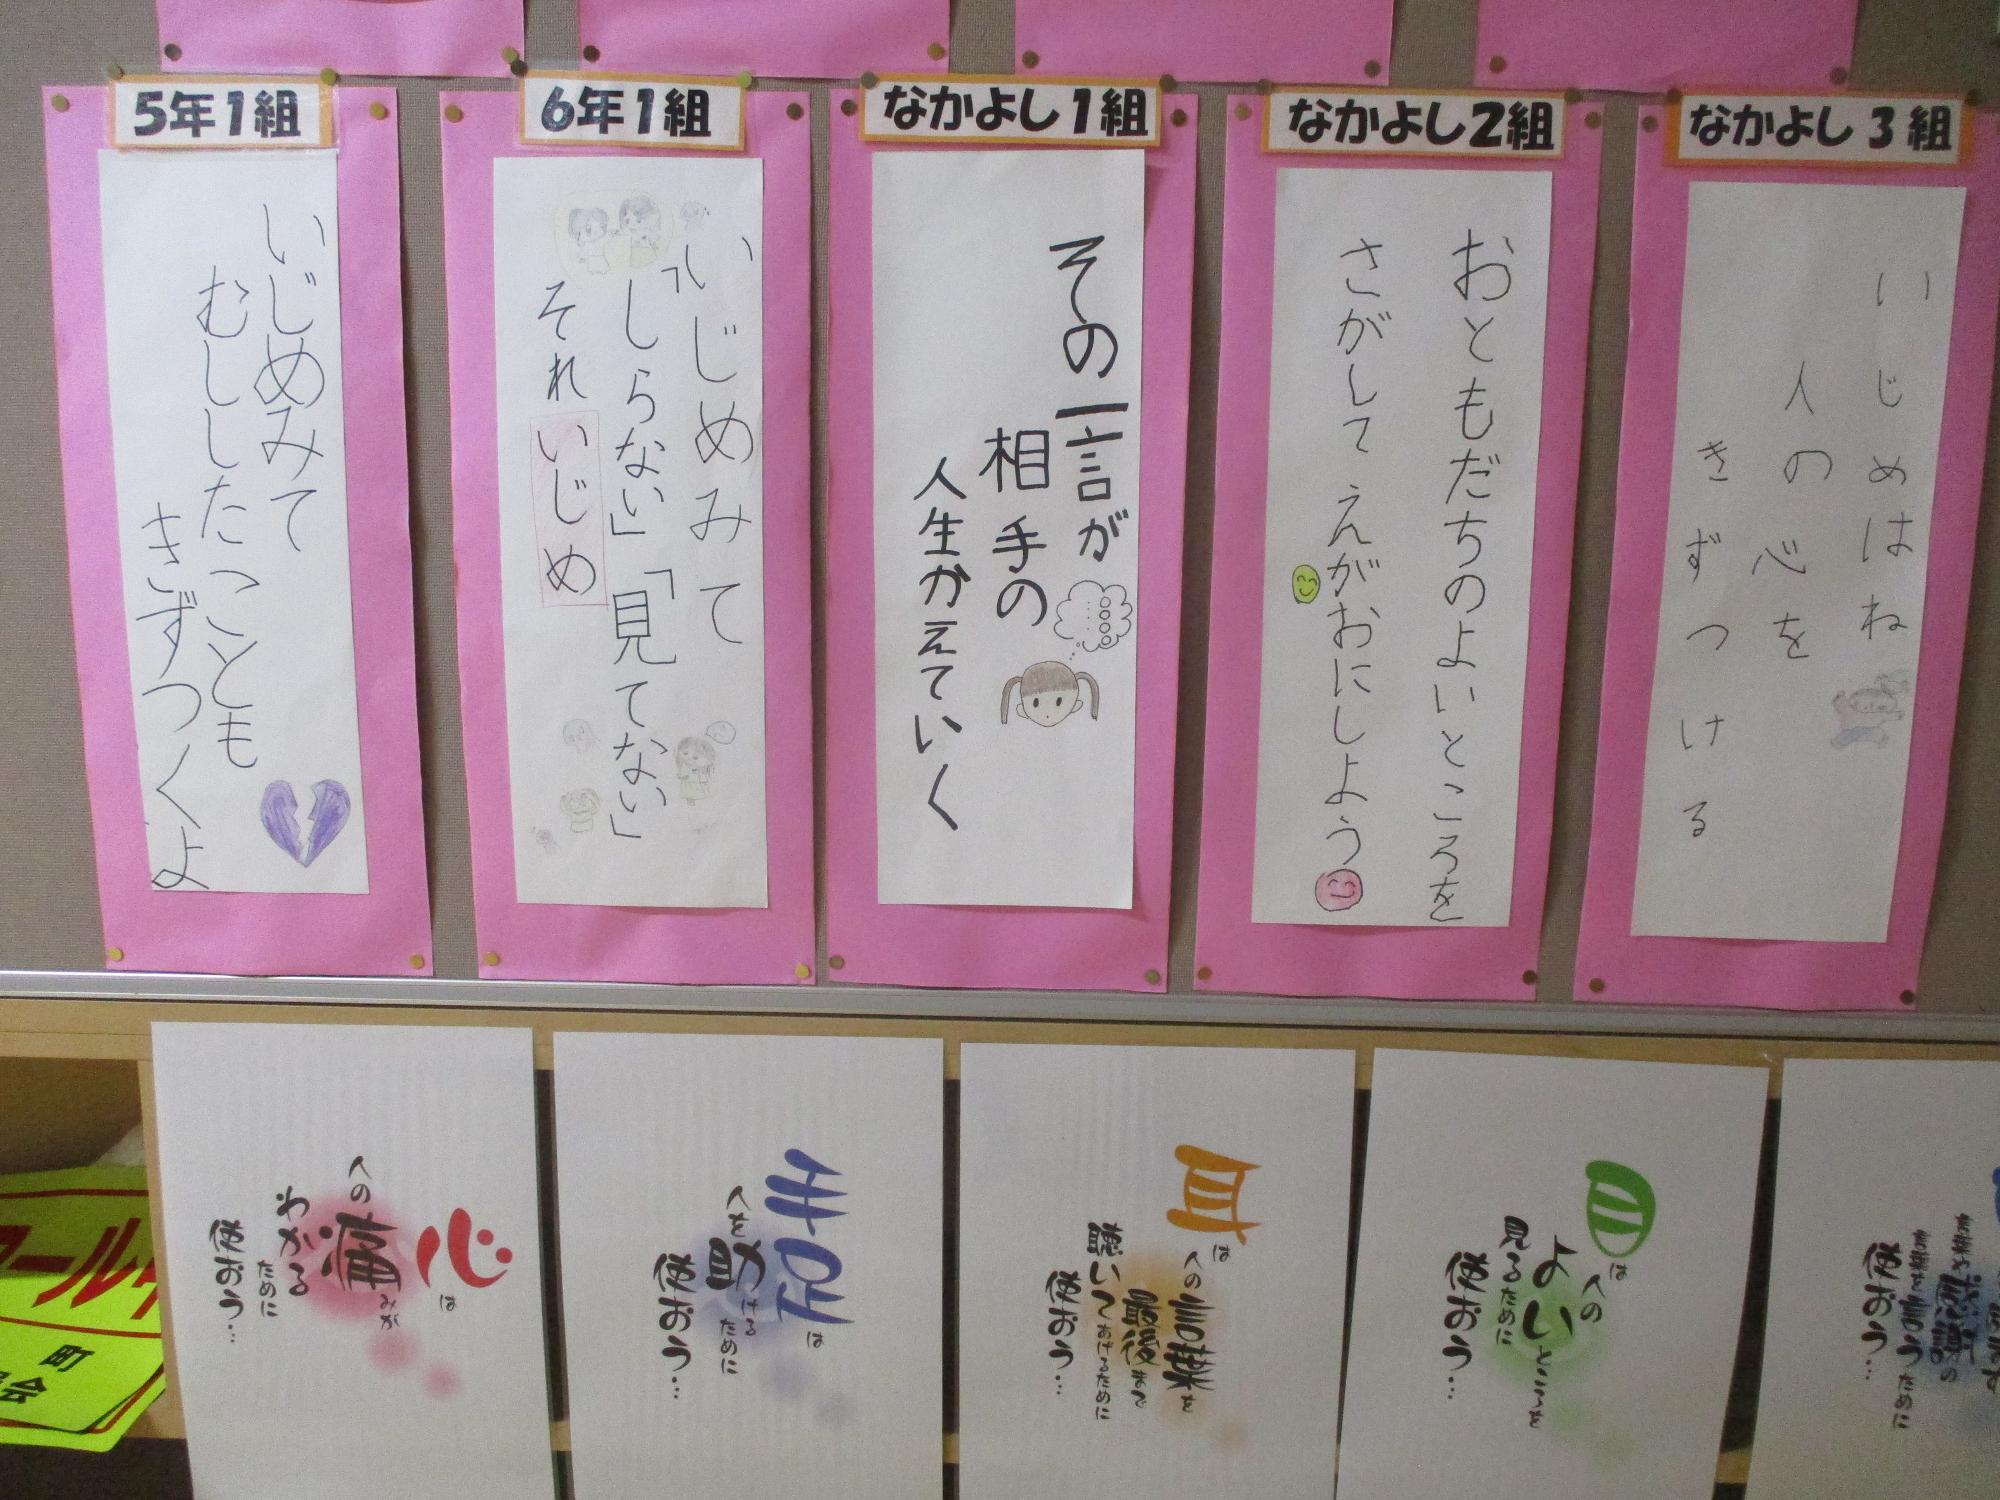 5年1組
いじめみて
むししたことも
きずつくよ
6年1組
いじめみて
「しらない」「見てない」
それいじめ
なかよし1組
その一言が
相手の
人生かえていく
なかよし2組
おともだちのよいところを
さがしてえがおにしよう
なかよし3組
いじめはね
人の心を
きずつける
心は
人の痛みが
わかる
ために
使おう…
手や足は
人を助けるために
使おう…
耳は
人の言葉を
最後まで
聴いてあげるために
使おう…
目は
人の
よいところを
見るために
使おう…
感謝の
言うために
使おう…
町
会